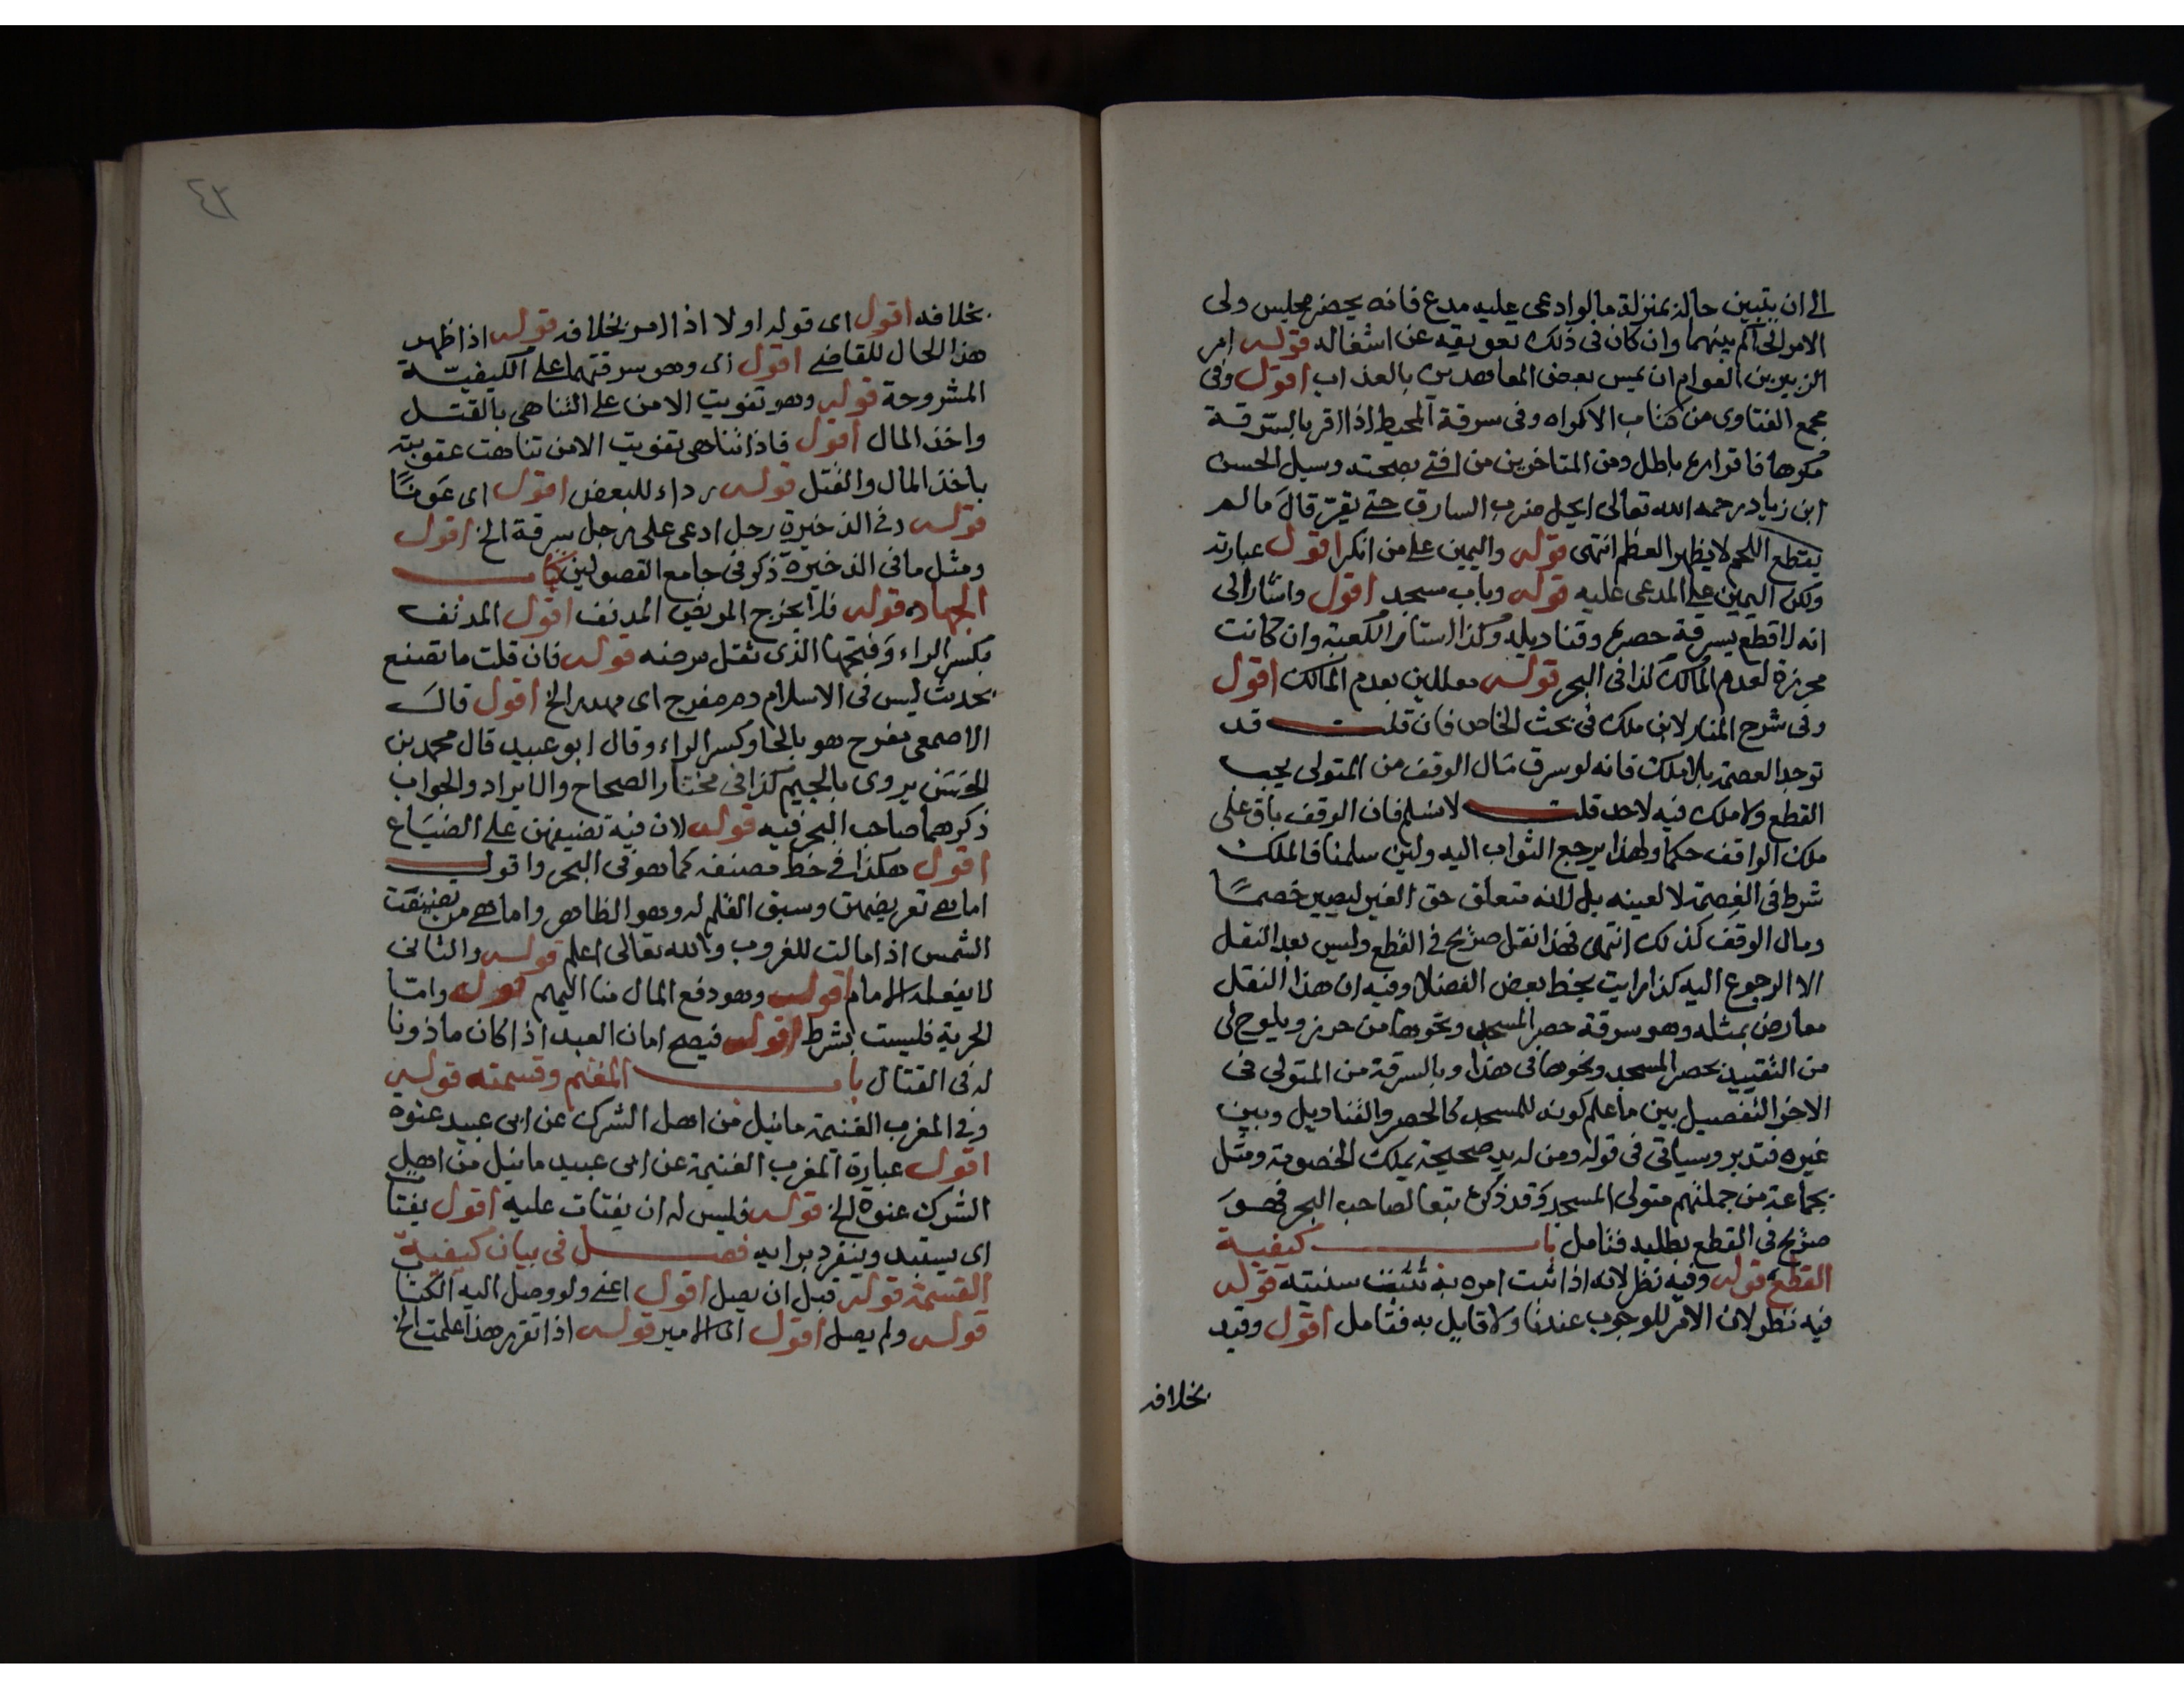 الى ان يتبين حاله بمنزلة ما لو ادعى عليه مدع فانه يحضر مجلس ولى
الامر ليحاكم بينهما وان كان فى ذلك تعويقه عن اشغاله قوله امر
الزبير بن العوام ان يمس بعض المعاهدين بالعذاب اقول وفى
مجمع الفتاوى من كتاب الاكراه وفى سرقة المحيط اذا اقر بالسرقة
مكرها فاقراره باطل ومن المتاخرين من افتى بصحته وسيل الحسن
ابن زياد رحمه الله تعالى ايحل ضرب السارق حتى يقرّ قال ما لم
يقطع اللحم لا يظهر العظم انتهى قوله واليمين على من انكر اقول عبارته
ولكن اليمين على المدعى عليه قوله وباب مسجد اقول واشار الى
انه لا قطع بسرقة حصره وقناديله وكذا استار الكعبة وان كانت
محرزة لعدم المالك كذا فى البحر قوله معللين بعدم المالك اقول
وفى شرح المنار لابن ملك فى بحث الخاص فان قلت قد
توجد العصمة بلا ملك فانه لو سرق مال الوقف من المتولى يجب
القطع ولا ملك فيه لاحد قلت لا نسلم فان الوقف باق على
ملك الواقف حكما ولهذا يرجع الثواب اليه ولين سلمنا فالملك
شرط فى العصمة لا لعينه بل لانه متعلق حق الغير ليصير خصمًا
ومال الوقف كذلك انتهى فهذا نقل صريح فى القطع وليس بعد النقل
الا الرجوع اليه كذا رايت بخط بعض الفضلا وفيه ان هذا النقل
معارض بمثله وهو سرقة حصر المسجد ونحوها من حرز ويلوح لى
من التقييد بحصر المسجد ونحوها فى هذا وبالسرقة من المتولى فى
الاخر التفصيل بين ما علم كونه للمسجد كالحصر والقناديل وبين
غيره فتدبر وسياتى فى قوله ومن له يد صحيحة يملك الخصومة ومثل
بجماعة من جملتهم متولى المسجد وقد ذكره تبعا لصاحب البحر فهو
صريح فى القطع بطلبه فتامل باب كيفية
القطع قوله وفيه نظر لانه اذا ثبت امره به تثبت سنيته قوله
فيه نظر لان الامر للوجوب عندنا ولا قايل به فتامل اقول وقيد
بخلافه
٤٢
بخلافه اقول اى قوله اولا اذا امر بخلافه قوله اذا ظهر
هذا الحال للقاضى اقول اى وهو سرقتهما على الكيفيّة
المشروحة قوله وهو تفويت الامن على التناهى بالقتل
واخذ المال اقول فاذا تناهى تفويت الامن تناهت عقوبته
باخذ المال والقتل قوله رداء للبعض اقول اى عَونًا
قوله وفى الذخيرة رجل ادعى على رجل سرقة الخ اقول
ومثل ما فى الذخيرة ذكر فى جامع الفصولين كتاب
الجهاد قوله فلا يخرج المريض المدنف اقول المدنف
بكسر الراء وفتحها الذى ثقل مرضه قوله فان قلت ما تصنع
بحديث ليس فى الاسلام دم مفرج اى مهدر الخ اقول قال
الاصمعى مفرح هو بالحا وكسر الراء وقال ابو عبيد قال محمد بن
الحَسَن يروى بالجيم كذا فى مختار الصحاح والايراد والجواب
ذكرهما صاحب البحر فيه قوله لان فيه تضيفهن على الضيَاع
اقول هكذا فى خط مصنفه كما هو فى البحر واقول
اما هى تعريضهن وسبق القلم له وهو الظاهر واما هى من تضيفت
الشمس اذا مالت للغروب والله تعالى اعلم قوله والثانى
لا يفعله الامام اقول وهو دفع المال منا اليهم قوله وامّا
الحرية فليست بشرط اقول فيصح امان العبد اذا كان ماذونا
له فى القتال باب المغنم وقسمته قوله
وفى المغرب الغنيمة ما نيل من اهل الشرك عن ابى عبيد عنوة
اقول عبارة المغرب الغنيمة عن ابى عبيد ما نيل من اهل
الشرك عنوة الخ قوله فليس له ان يفتات عليه اقول يفتا
اى يستبد وينفرد برايه فصل فى بيان كيفية
القسمة قوله قبل ان يصل اقول اعنى ولو وصل اليه الكتا
قوله ولم يصل اقول اى الامير قوله اذا تقرر هذا علمت الخ